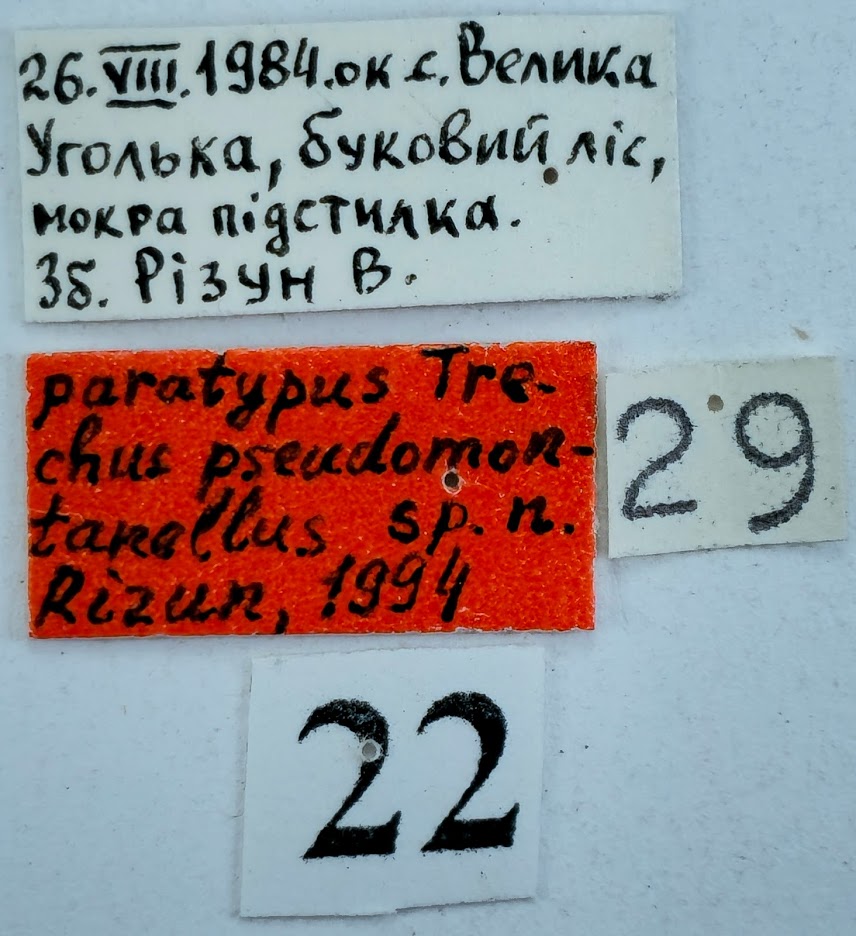 26.VIII.1984.ок с. Велика
Уголька, буковий ліс,
мокра підстилка.
Зб. Різун В.
paratypus Tre-
chus pseudomon-
tanellus sp. n.
Rizun, 1994
29
22